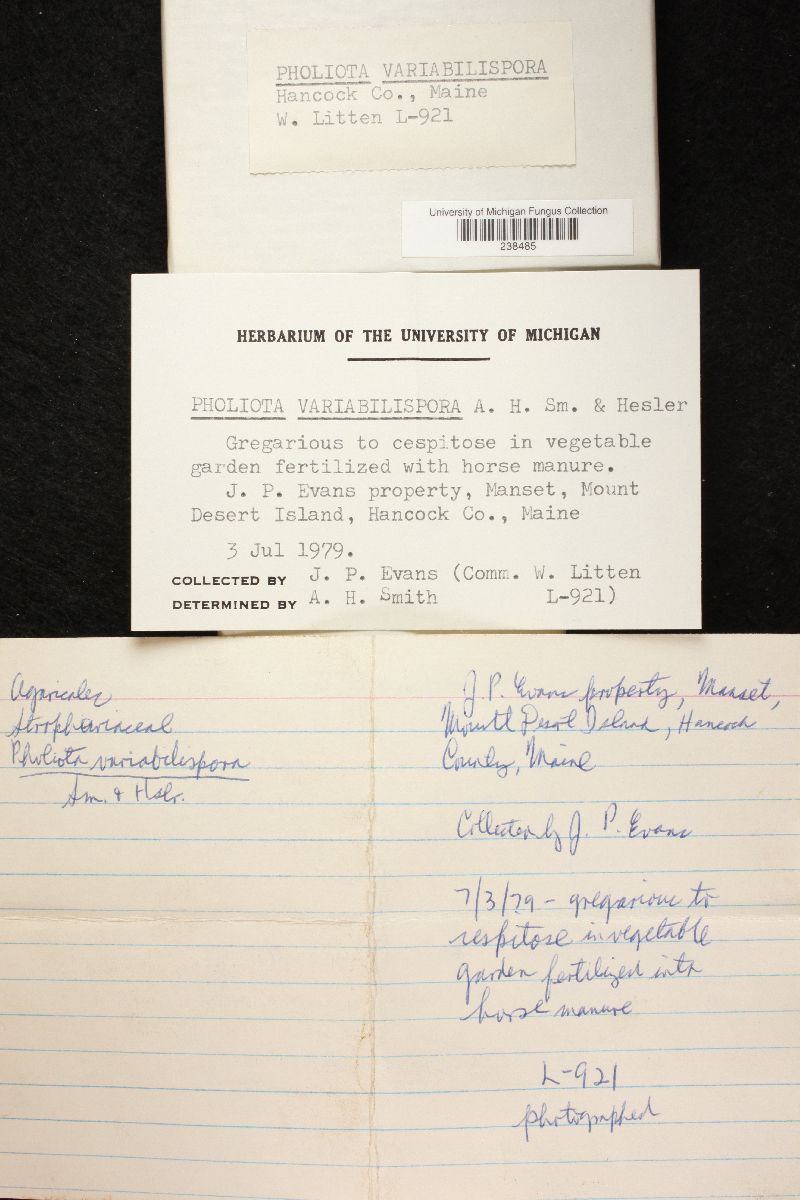 PHOLIOTA VARIABILISPORA
Hancock Co., Maine
W. Litten L-921
University of Michigan Fungus Collection
238485
HERBARIUM OF THE UNIVERSITY OF MICHIGAN
PHOLIOTA VARIABILISPORA A. H. Sm. & Hesler
Gregarious to cespitose in vegetable
garden fertilized with horse manure.
J. P. Evans property, Manset, Mount
Desert Island, Hancock Co., Maine
3 Jul 1979.
COLLECTED BY J. P. Evans (Comm. W. Litten
DETERMINED BY A. H. Smith L-921)
Agaricales
Strophariaceae
Pholiota variabilispora
Sm. & Hslr.
J. P. Evans property, Manset,
Mount Desert Island, Hancock
County, Maine
Collected by J. P. Evans
7/3/79 - gregarious to
cespitose in vegetable
garden fertilized with
horse manure
L-921
photographed